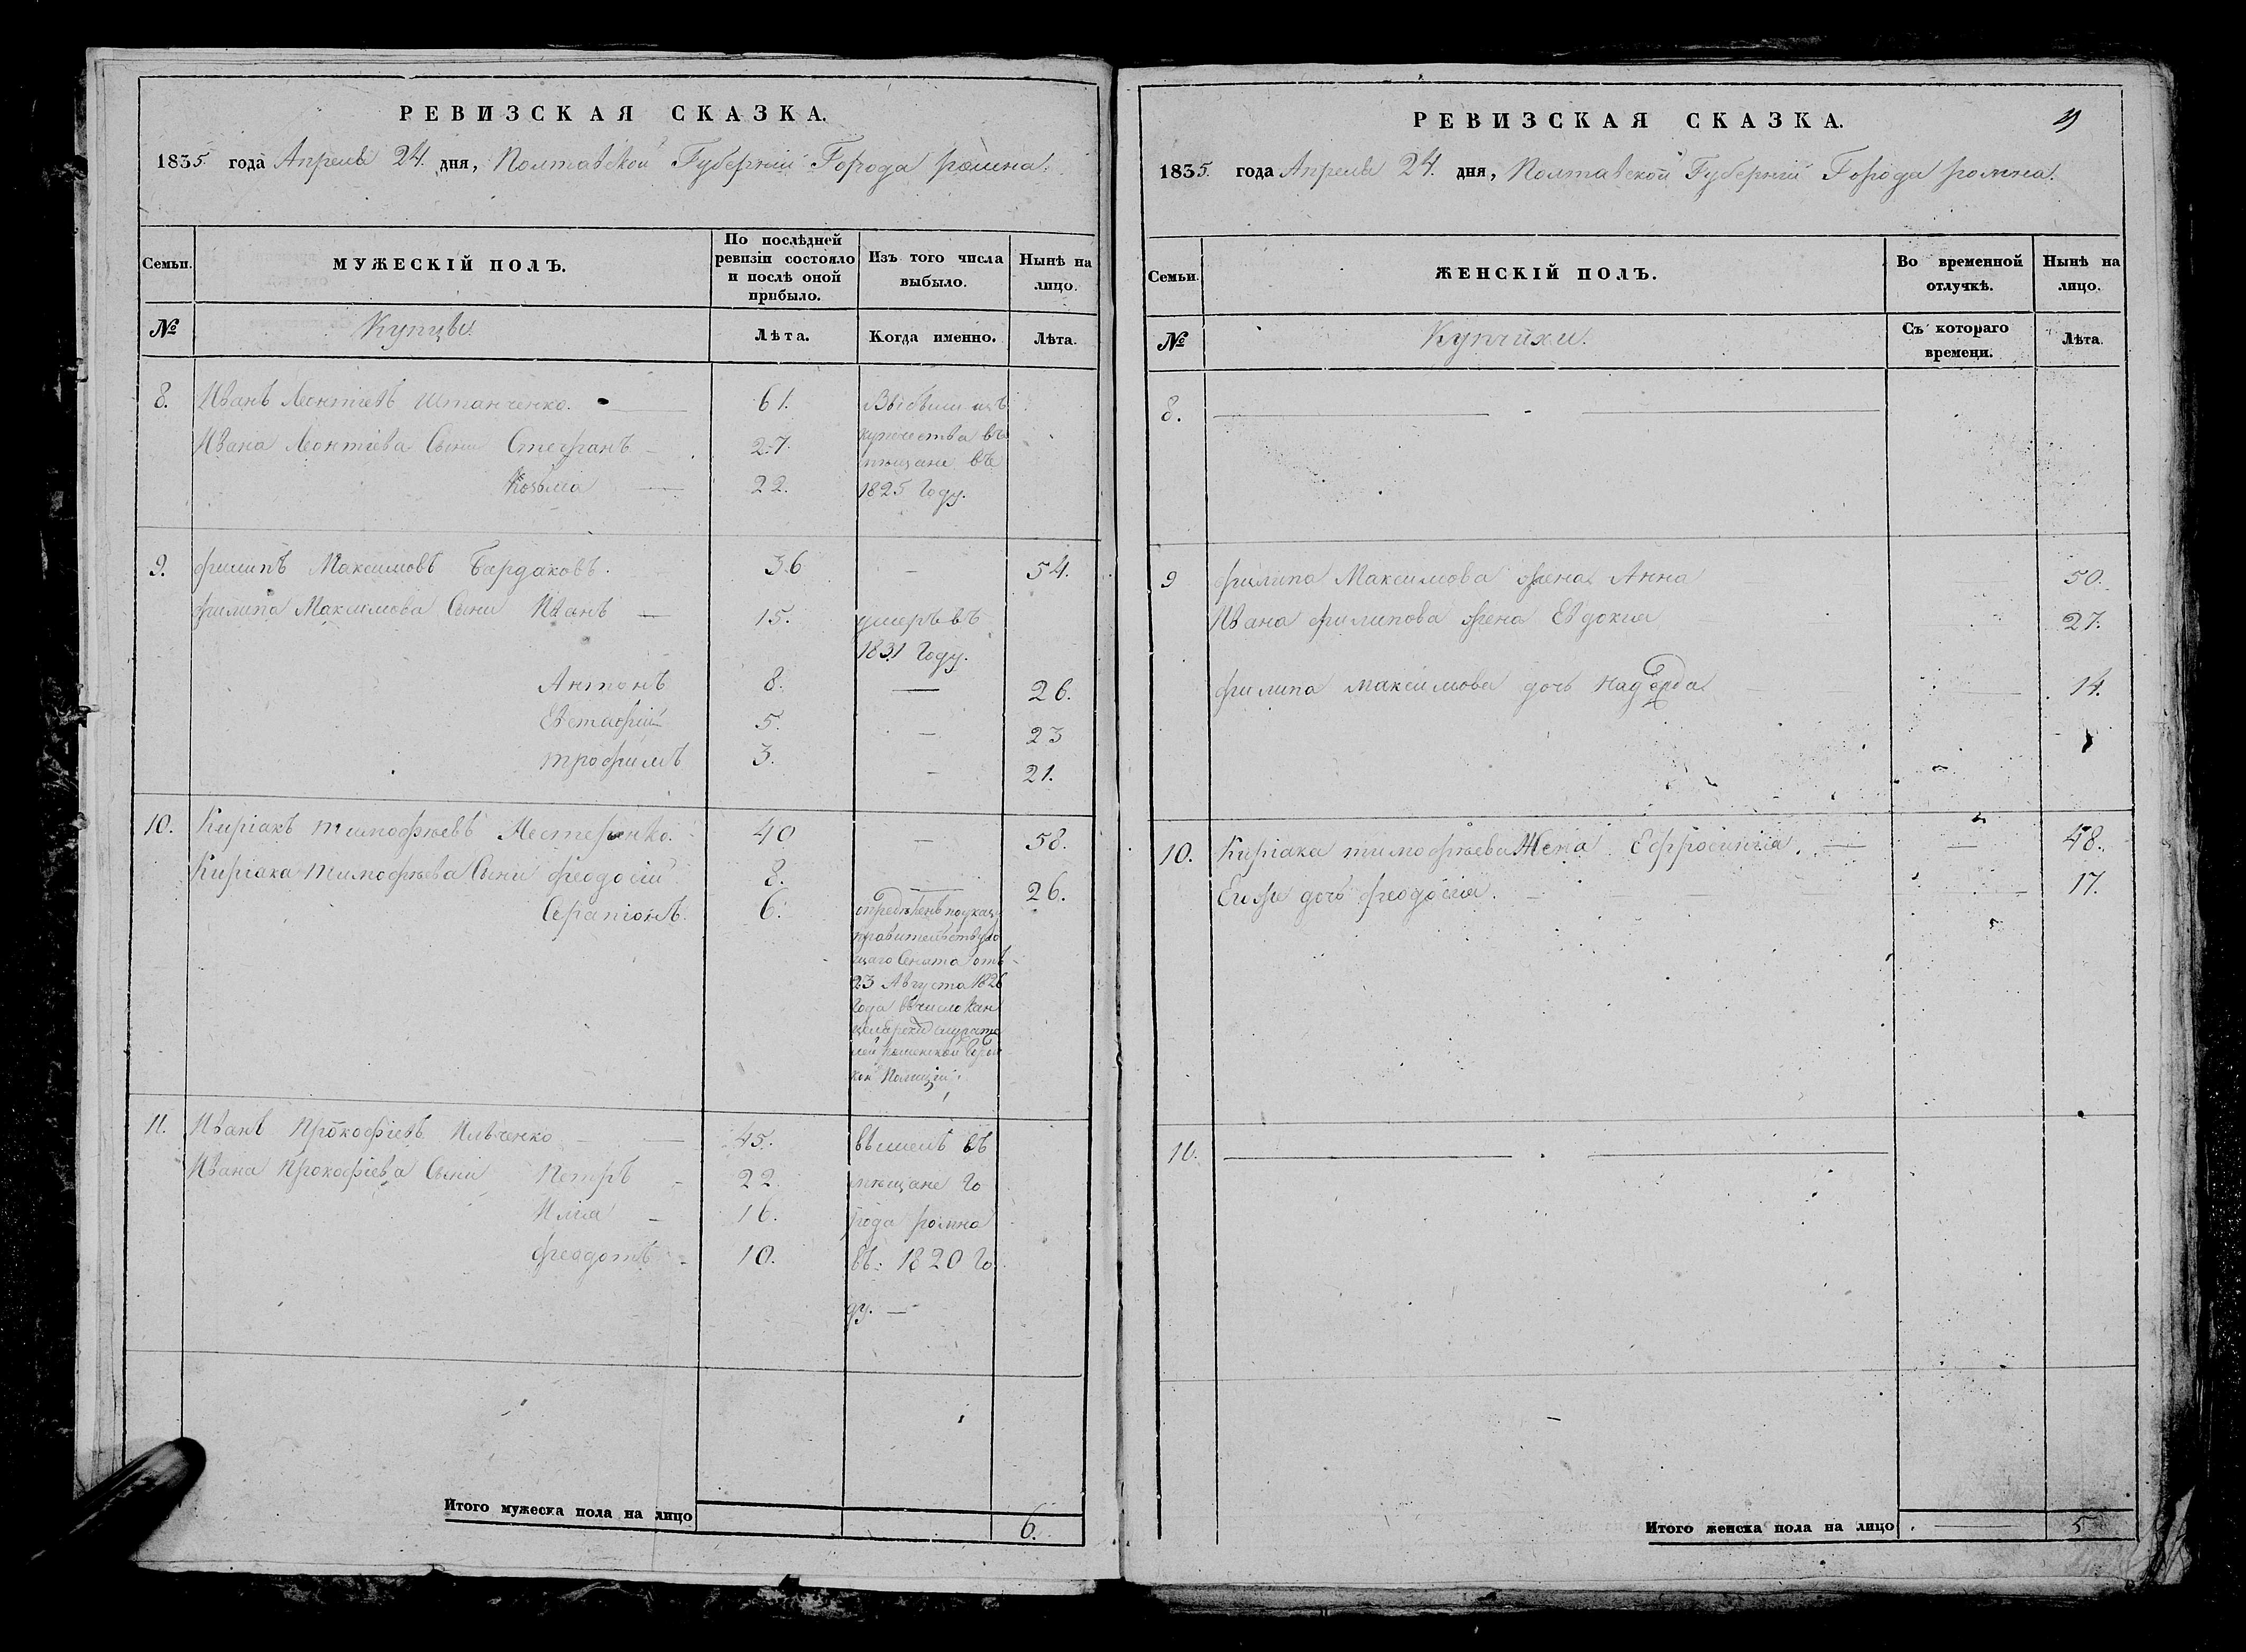 РЕВИЗСКАЯ СКАЗКА.
1835 года Апреля 24. дня, Полтавской Губерніи Города ромна.
Семьи.
МУЖЕСКІЙ ПОЛЪ.
По послѣдней ревизіи состояло и послѣ оной прибыло.
Изъ того числа выбыло.
Нынѣ на лицо.
№
Купцы.
Лѣта.
Когда именно.
Лѣта.
8. Иванъ Леонтіевъ Штанченко. 61. Выбыли изъ
Ивана Леонтіева Сыни Стефанъ 27. купечества въ
мещане въ
Козьма 22. 1825 Году.
9. филипъ Максимовъ Бардаковъ. 36 — 54.
филипа Максимова Сыни Иванъ — 15. умеръ въ
1831 Году.
Антонъ 8. — 26.
Евстафій 5. — 23
трофимъ 3. — 21.
10. Киріакъ тимофѣевъ Нестеренко. 40 — 58.
Киріака тимофѣева Сыни феодосій 8. — 26.
Серапіонъ. 6. опредѣленъ по указу
правительствую
щаго Сената отъ
23 Августа 1826
Года въ число кан
целярски служите
лей роменской Город
кой Полиціи.
11. Иванъ Прокофіевъ Илченко 45. вышелъ въ
Ивана Прокофіева Сыни Петръ 22. мещане Го
Илія 16. рода ромна
феодотъ 10. въ: 1820 Го
ду. —
Итого мужеска пола на лицо 6.
РЕВИЗСКАЯ СКАЗКА.
1835. года Апреля 24. дня, Полтавской Губерніи Города ромна.
Семьи.
ЖЕНСКІЙ ПОЛЪ.
Во временной отлучкѣ.
Нынѣ на лицо.
№
Купчихи.
Съ котораго времени.
Лѣта.
8.
9 филипа Максимова жена Анна 50.
Ивана филипова жена Евдокия 27.
филипа максимова дочь 14.
10. Киріака тимофѣева Жена Ефросинія. 48.
Егоже дочь феодосія. 17.
11.
Итого женска пола на лицо 5